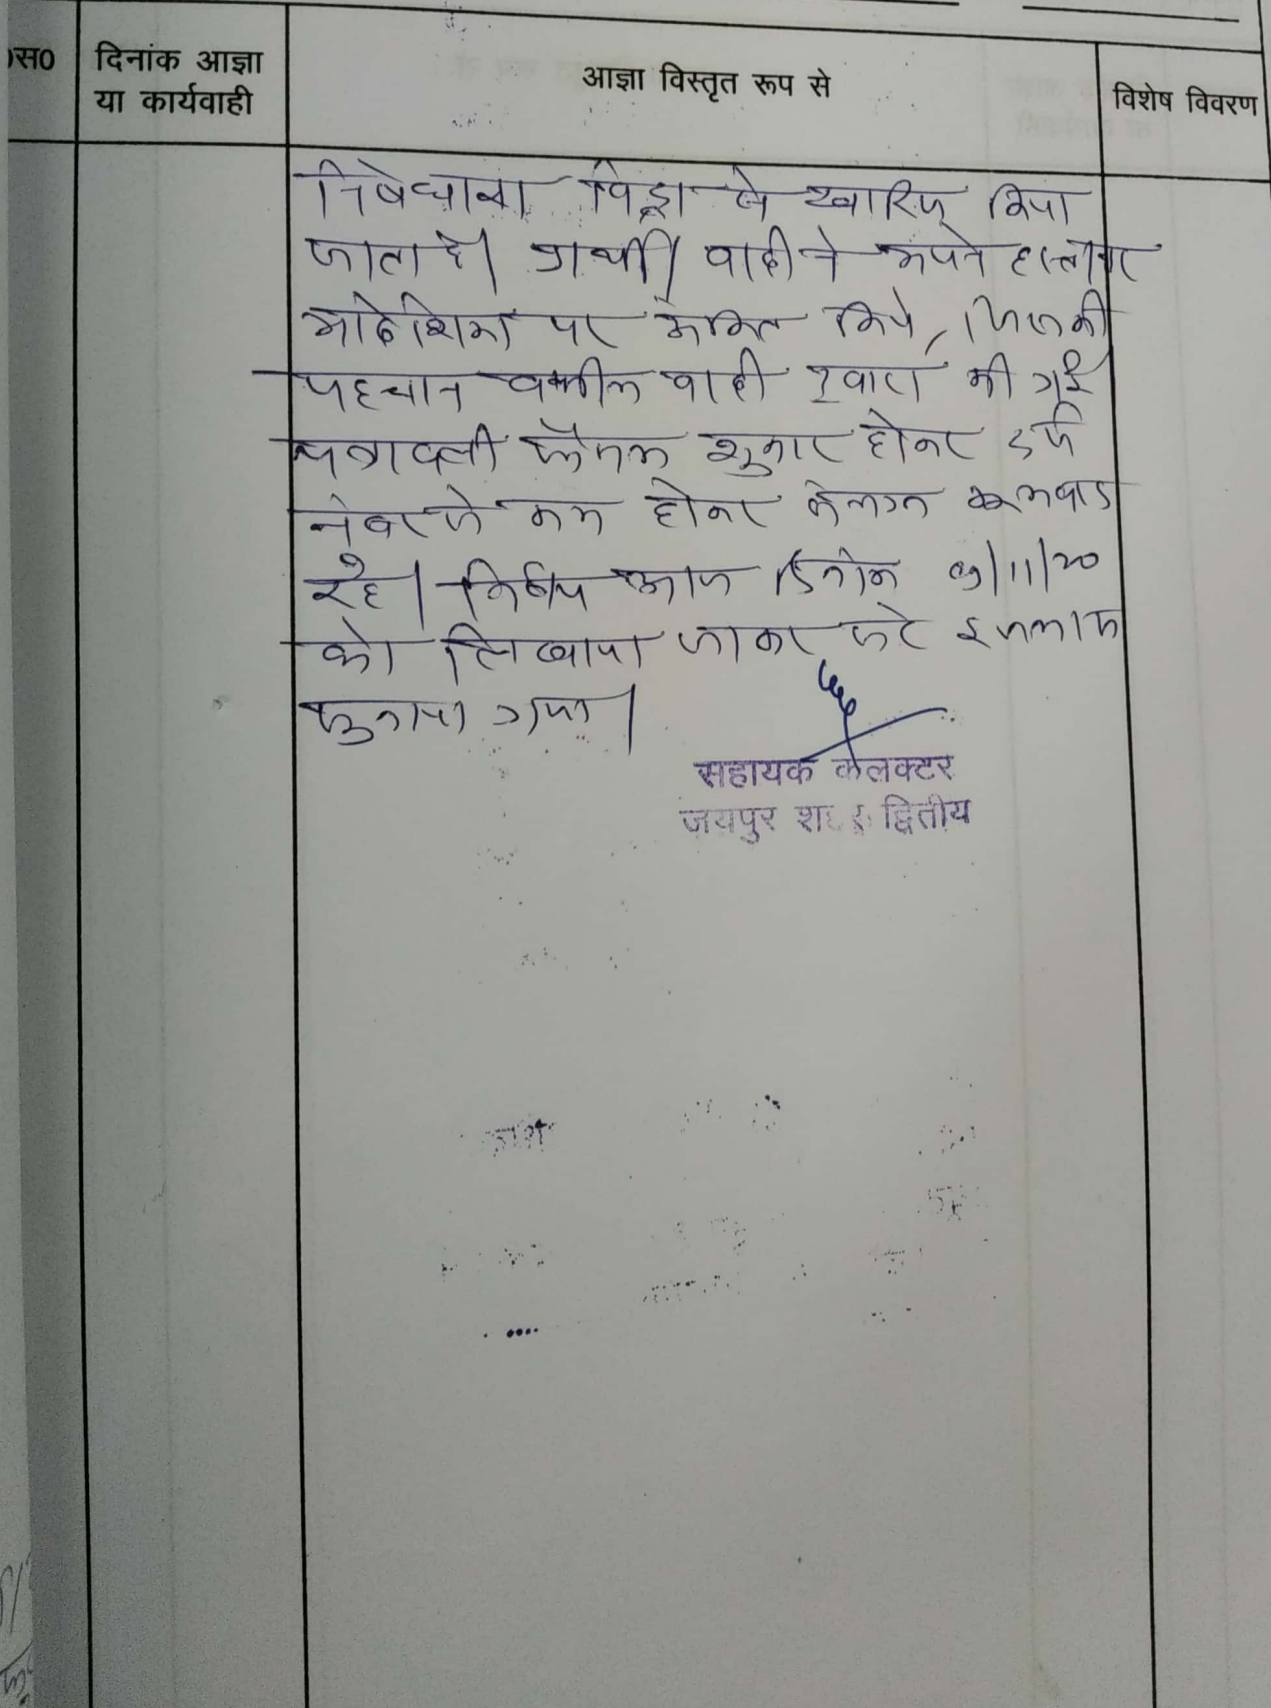 स0
दिनांक आज्ञा
या कार्यवाही
आज्ञा विस्तृत रूप से
विशेष विवरण
निषेधाज्ञा विड्रा में खारिज किया
जाता है। प्रार्थी/वादी ने अपने हस्ताक्षर
आदेशिका पर अंकित किये, जिसकी
पहचान वकील वादी द्वारा की गई
पत्रावली फैसल शुमार होकर दर्ज
नंबर से कम होकर संलग्न मूलवाद
रहे। निर्णय आज दिनांक 09/11/20
को लिखाया जाकर सरे इजलास
सुनाया गया।
सहायक कलक्टर
जयपुर शहर द्वितीय